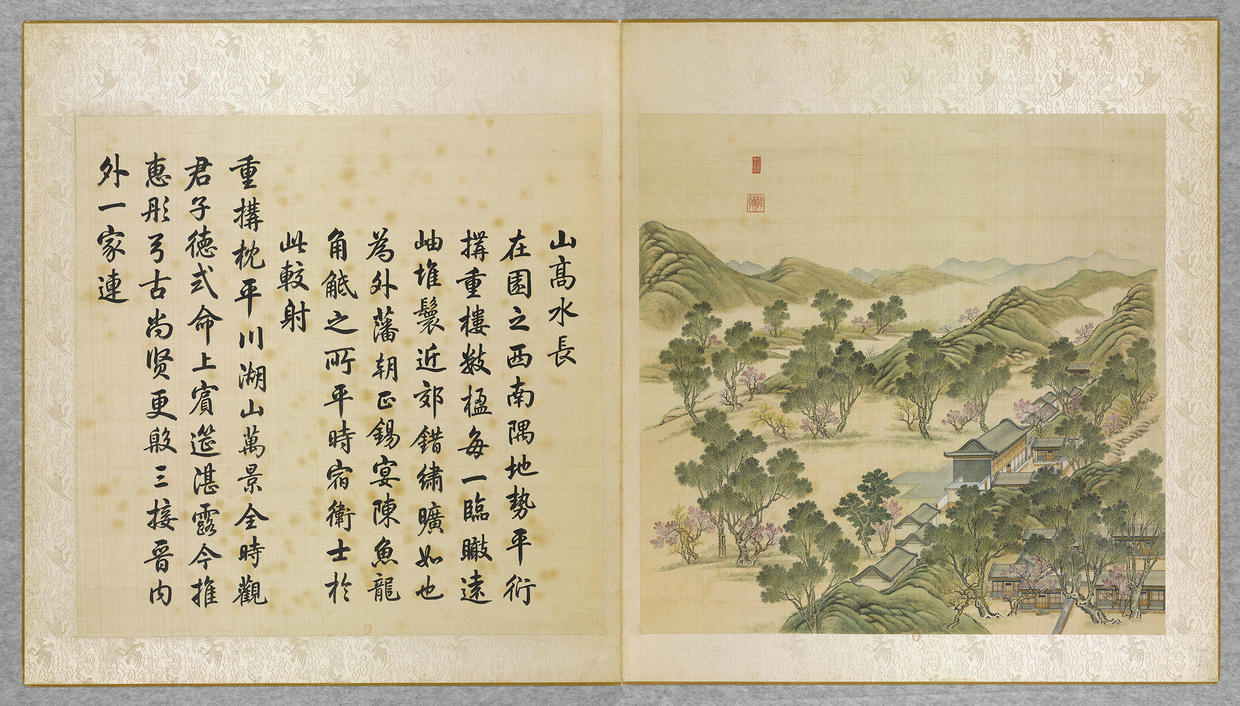 山髙水長
在園之西南隅地勢平衍
搆重樓數楹每一臨瞰遠
岫堆鬟近郊錯繡曠如也
為外藩朝正錫宴陳魚龍
角觝之所平時宿衛士於
此較射
重搆枕平川湖山萬景全時觀
君子德式命上賓筵湛露今推
惠彤弓古尚賢更殷三接晉內
外一家連